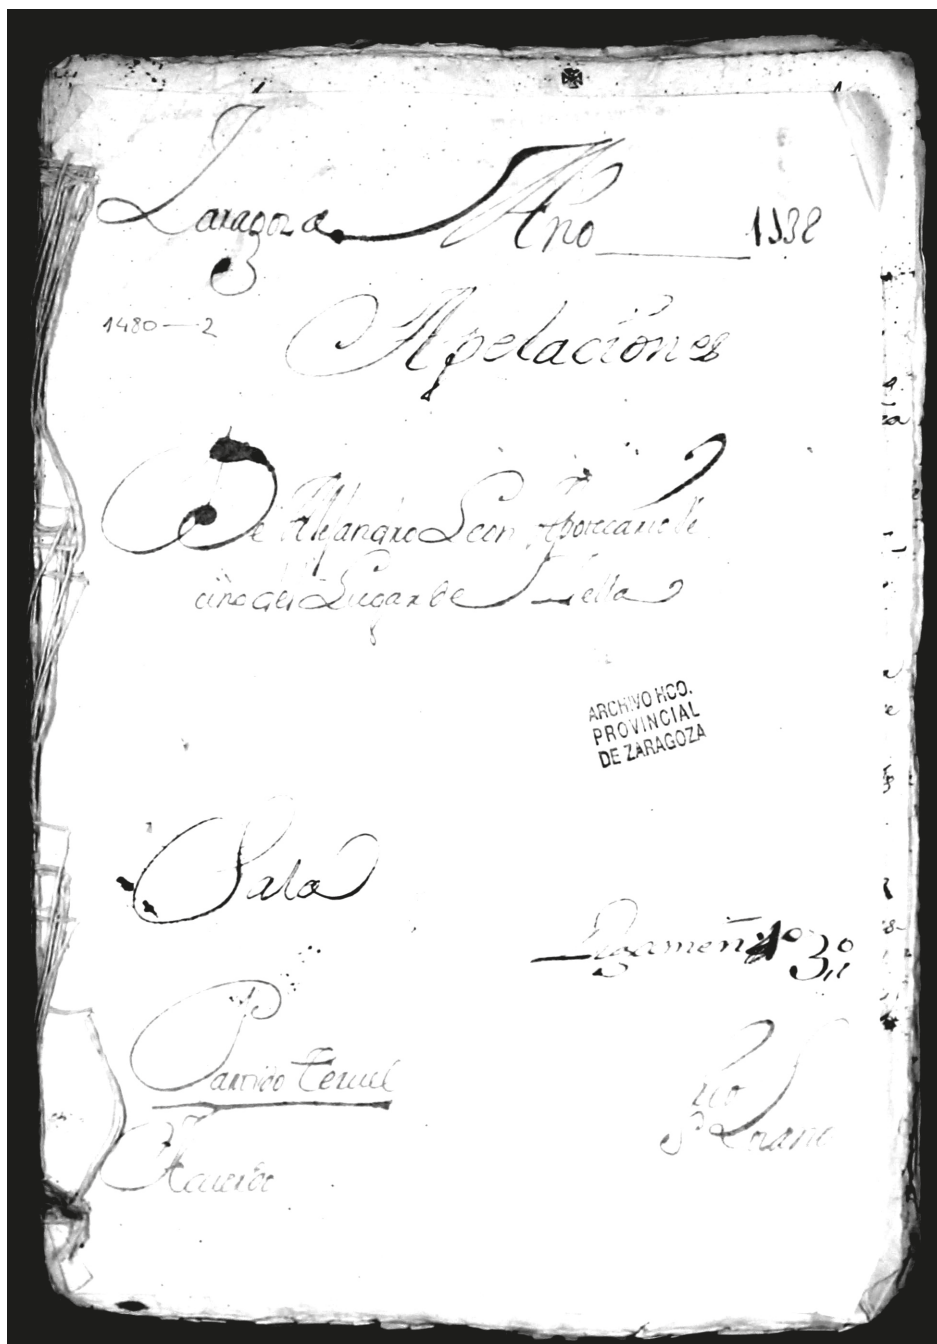 Zaragoza Año 1738
1480—2
Apelaciones
De Alejandro Leon Apotecario Ve
cino del Lugar de Zella
ARCHIVO HCO.
PROVINCIAL
DE ZARAGOZA
Sala
Legamen 3º
Partido Teruel
Acuerdo
Lozano